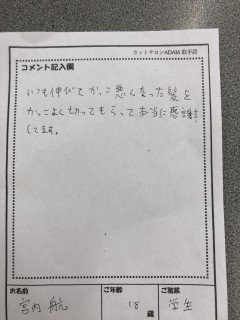 カットサロンADAM 取手店
コメント記入欄
いつも伸びてかっこ悪くなった髪を
かっこよく切ってもらって本当に感謝
してます。
お名前
ご年齢
ご職業
宮内 航
18歳
学生